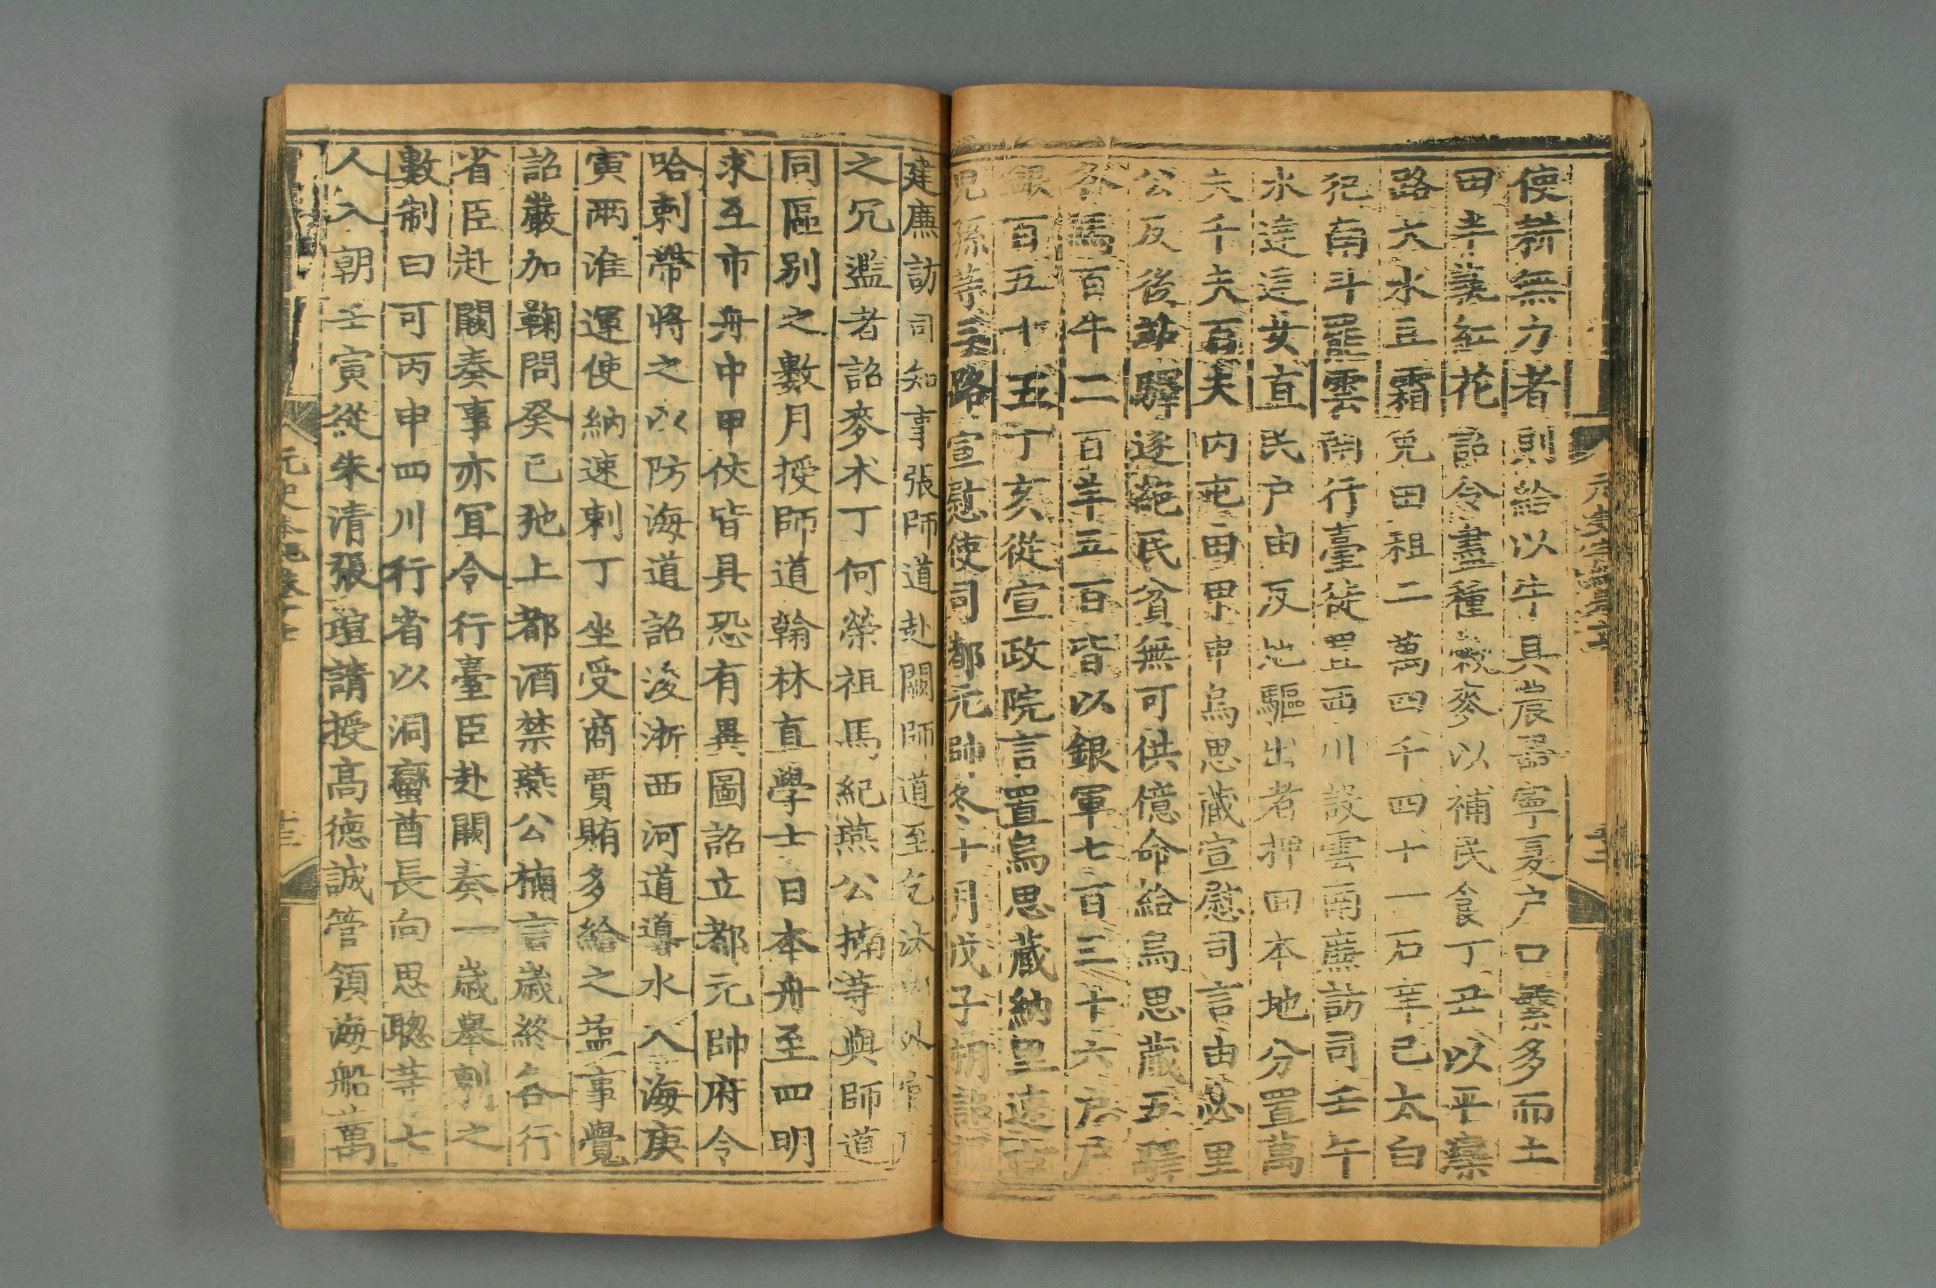 使薪無力者則給以牛具農器寧夏户口繁多而土
田半蓺紅花詔令盡種穀麥以補民食丁丑以平灤
路大水且霜免田租二萬四千四十一石辛巳太白
犯南斗罷雲南行臺徙置西川設雲南廉訪司壬午
水達達女直民户由反地驅出者押回本地分置萬
夫千夫百夫内屯田甲申烏思藏宣慰司言由必里
公反後站驛遂絶民貧無可供億命給烏思藏五驛
各馬百牛二百羊五百皆以銀軍七百三十六户户
銀百五十五丁亥從宣政院言置烏思藏納里速古
兒孫等三路宣慰使司都元帥冬十月戊子朔詔福
建廉訪司知事張師道赴闕師道至乞汰内外官府
之冗濫者詔麥术丁何榮祖馬紀燕公楠等與師道
同區别之數月授師道翰林直學士日本舟至四明
求互市舟中甲伏皆具恐有異圖詔立都元帥府令
哈剌帶將之以防海道詔浚浙西河道導水入海庚
寅兩淮運使納速剌丁坐受商賈賄多給之鹽事覺
詔嚴加鞠問癸巳弛上都酒禁燕公楠言歲終各行
省臣赴闕奏事亦冝令行臺臣赴闕奏一歲舉刺之
數制曰可丙申四川行省以洞蠻酋長向思聰等七
人入朝壬寅從朱清張瑄請授高德誠管領海船萬
元史本紀卷十七
十三